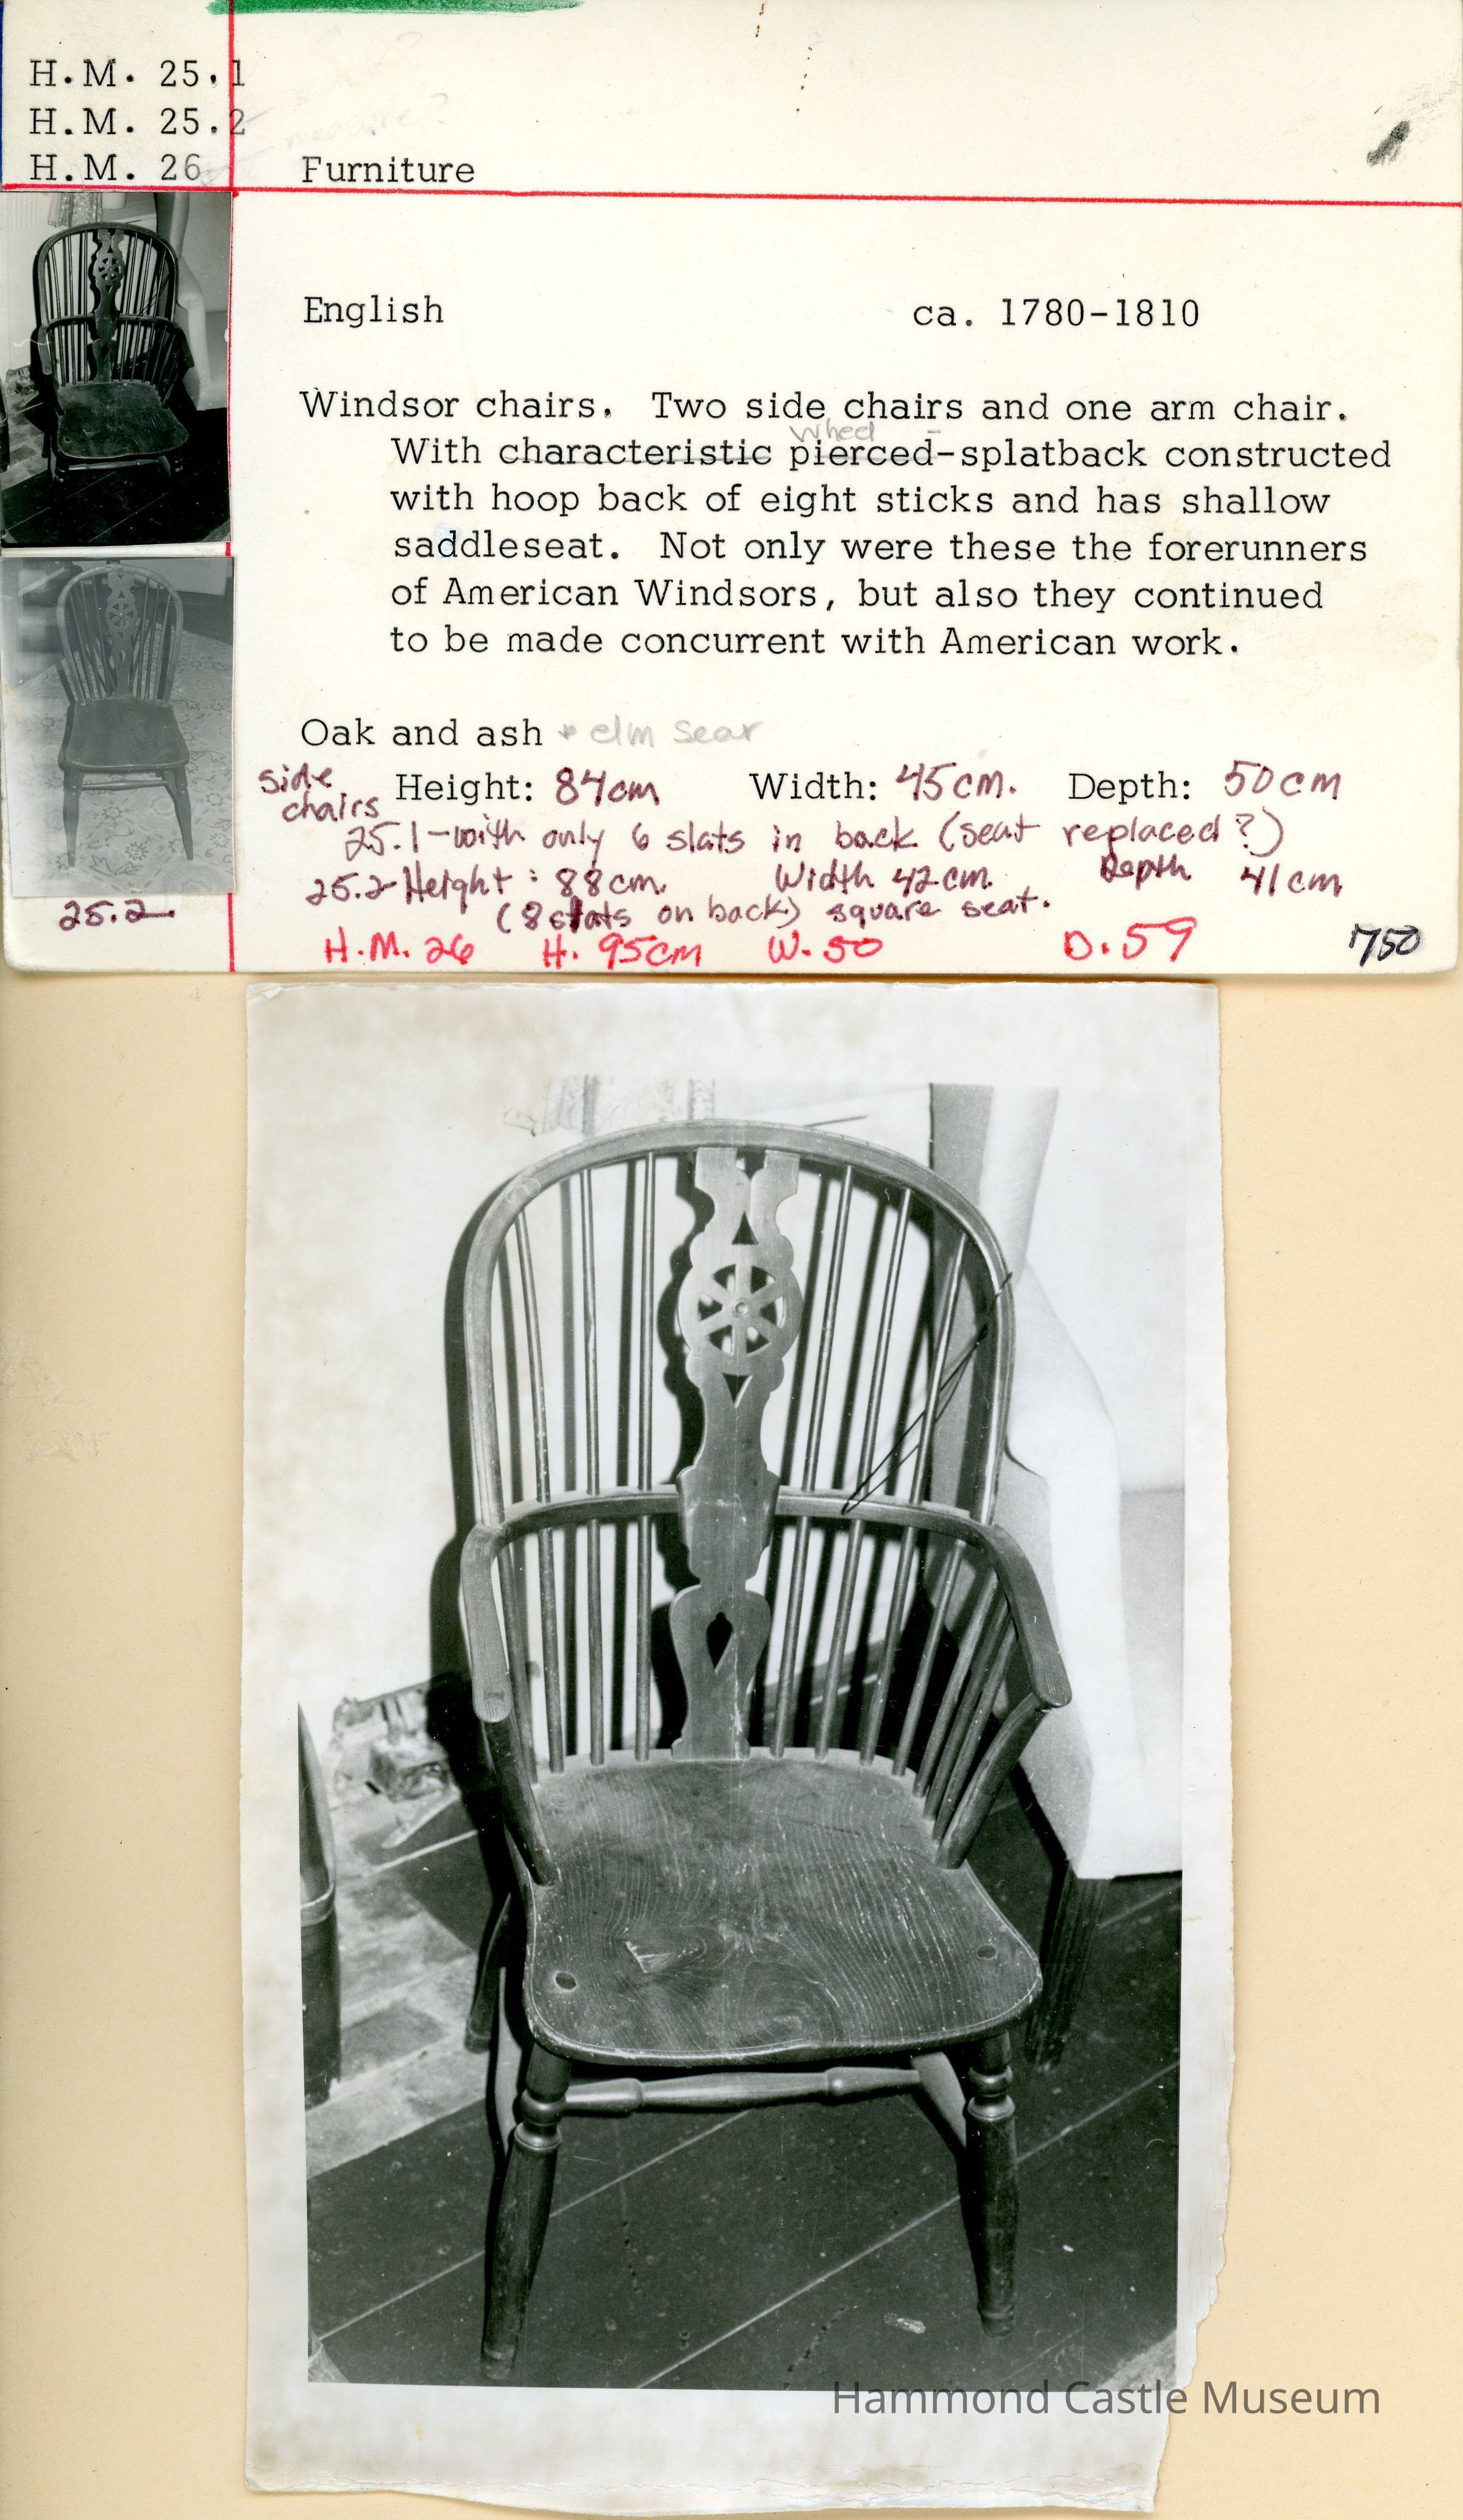 H.M. 25.1
H.M. 25.2
measure?
H.M. 26
Furniture
English ca. 1780-1810
Windsor chairs. Two side chairs and one arm chair.
wheel
With characteristic pierced-splatback constructed
with hoop back of eight sticks and has shallow
saddleseat. Not only were these the forerunners
of American Windsors, but also they continued
to be made concurrent with American work.
Oak and ash + elm seat
side chairs Height: 84cm Width: 45cm. Depth: 50cm
25.1-with only 6 slats in back (seat replaced?)
25.2-Height: 88cm. Width 42cm. Depth 41cm
(8 slats on back) square seat.
25.2
H.M. 26 H. 95cm W. 50 D. 59 750
Hammond Castle Museum